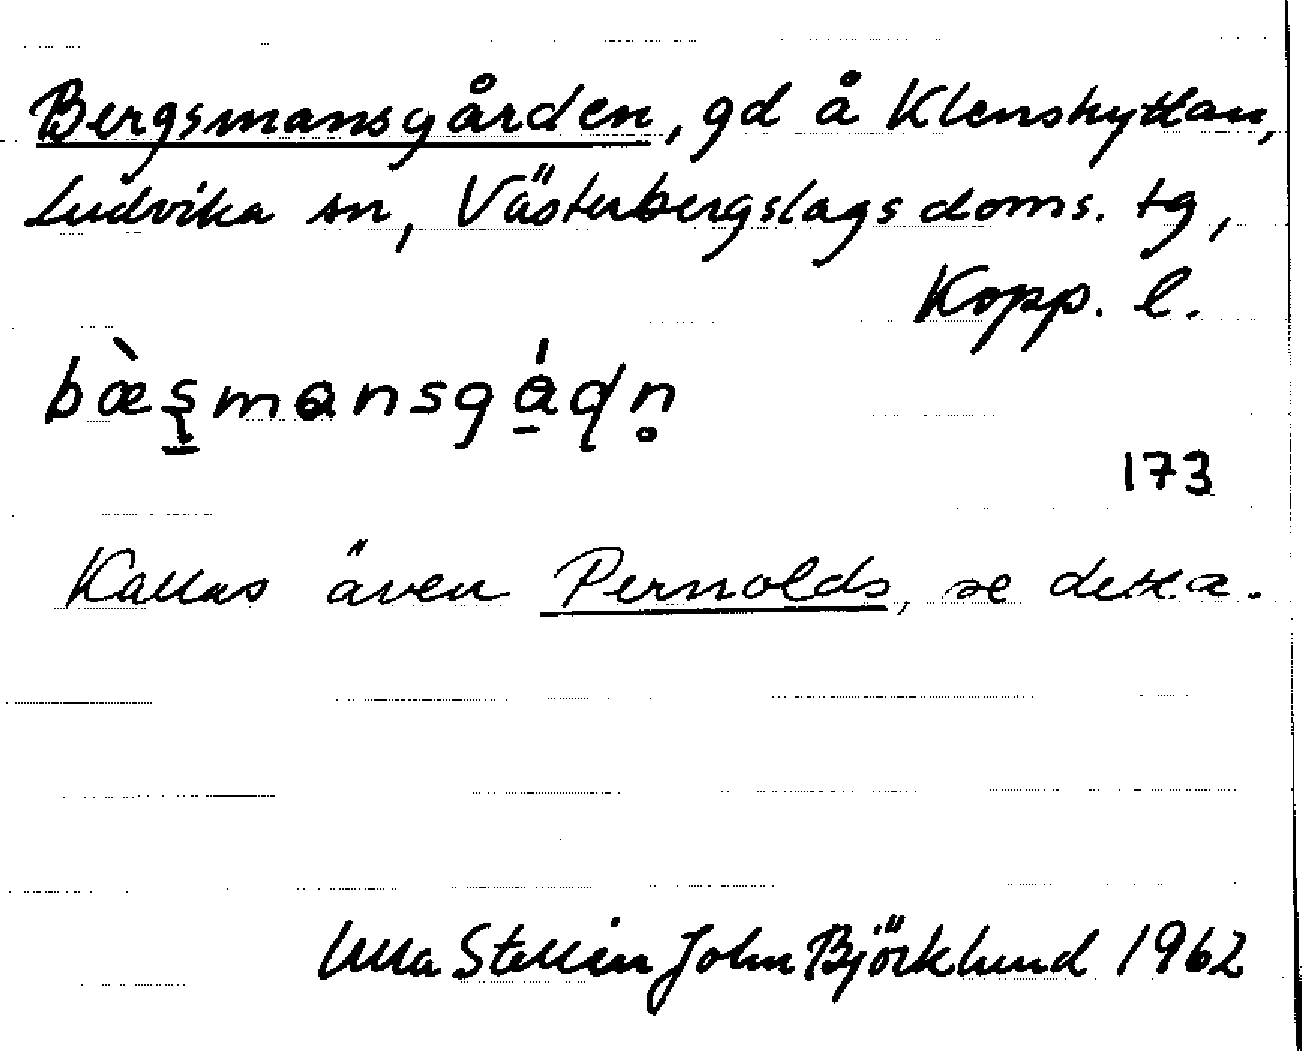 Bergsmansgården, gd å Klenshyttan,
Ludvika sn, Västerbergslags doms. tg,
Kopp. l.
bæ̀ʂ̲mansgá̱ɖn̥
173
Kallas även Pernolds, se detta.
Ulla Stallin John Björklund 1962